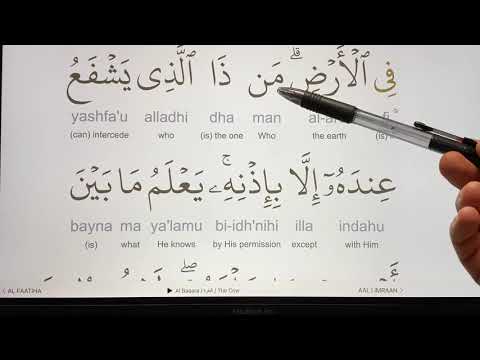 فِي ٱلْأَرْضِ ۗ مَن ذَا ٱلَّذِى يَشْفَعُ
yashfa'u alladhi dha man fi
(can) intercede who (is) the one Who the earth
عِندَهُۥٓ إِلَّا بِإِذْنِهِۦ ۚ يَعْلَمُ مَا بَيْنَ
bayna ma ya'lamu bi-idh'nihi illa indahu
(is) what He knows by His permission except with Him
< AL FAATIHA ▶ Al Baqara / البقرة / The Cow AAL I IMRAAN >